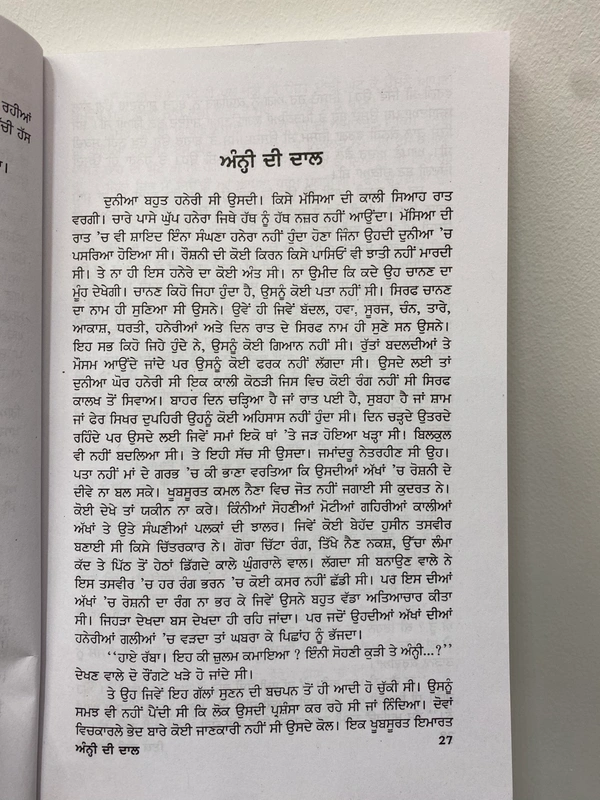 ਰਹੀਆਂ
ਹੱਸ
ਅੰਨ੍ਹੀ ਦੀ ਦਾਲ
ਦੁਨੀਆ ਬਹੁਤ ਹਨੇਰੀ ਸੀ ਉਸਦੀ। ਕਿਸੇ ਮੱਸਿਆ ਦੀ ਕਾਲੀ ਸਿਆਹ ਰਾਤ
ਵਰਗੀ। ਚਾਰੇ ਪਾਸੇ ਘੁੱਪ ਹਨੇਰਾ ਜਿਥੇ ਹੱਥ ਨੂੰ ਹੱਥ ਨਜ਼ਰ ਨਹੀਂ ਆਉਂਦਾ। ਮੱਸਿਆ ਦੀ
ਰਾਤ 'ਚ ਵੀ ਸ਼ਾਇਦ ਇੰਨਾ ਸੰਘਣਾ ਹਨੇਰਾ ਨਹੀਂ ਹੁੰਦਾ ਹੋਣਾ ਜਿੰਨਾ ਉਹਦੀ ਦੁਨੀਆ 'ਚ
ਪਸਰਿਆ ਹੋਇਆ ਸੀ। ਰੌਸ਼ਨੀ ਦੀ ਕੋਈ ਕਿਰਨ ਕਿਸੇ ਪਾਸਿਓਂ ਵੀ ਝਾਤੀ ਨਹੀਂ ਮਾਰਦੀ
ਸੀ। ਤੇ ਨਾ ਹੀ ਇਸ ਹਨੇਰੇ ਦਾ ਕੋਈ ਅੰਤ ਸੀ। ਨਾ ਉਮੀਦ ਕਿ ਕਦੇ ਉਹ ਚਾਨਣ ਦਾ
ਮੂੰਹ ਦੇਖੇਗੀ। ਚਾਨਣ ਕਿਹੋ ਜਿਹਾ ਹੁੰਦਾ ਹੈ, ਉਸਨੂੰ ਕੋਈ ਪਤਾ ਨਹੀਂ ਸੀ। ਸਿਰਫ ਚਾਨਣ
ਦਾ ਨਾਮ ਹੀ ਸੁਣਿਆ ਸੀ ਉਸਨੇ। ਉਵੇਂ ਹੀ ਜਿਵੇਂ ਬੱਦਲ, ਹਵਾ, ਸੂਰਜ, ਚੰਨ, ਤਾਰੇ,
ਆਕਾਸ਼, ਧਰਤੀ, ਹਨੇਰੀਆਂ ਅਤੇ ਦਿਨ ਰਾਤ ਦੇ ਸਿਰਫ ਨਾਮ ਹੀ ਸੁਣੇ ਸਨ ਉਸਨੇ।
ਇਹ ਸਭ ਕਿਹੋ ਜਿਹੇ ਹੁੰਦੇ ਨੇ, ਉਸਨੂੰ ਕੋਈ ਗਿਆਨ ਨਹੀਂ ਸੀ। ਰੁੱਤਾਂ ਬਦਲਦੀਆਂ ਤੇ
ਮੌਸਮ ਆਉਂਦੇ ਜਾਂਦੇ ਪਰ ਉਸਨੂੰ ਕੋਈ ਫਰਕ ਨਹੀਂ ਲੱਗਦਾ ਸੀ। ਉਸਦੇ ਲਈ ਤਾਂ
ਦੁਨੀਆ ਘੋਰ ਹਨੇਰੀ ਸੀ ਇਕ ਕਾਲੀ ਕੋਠੜੀ ਜਿਸ ਵਿਚ ਕੋਈ ਰੰਗ ਨਹੀਂ ਸੀ ਸਿਰਫ
ਕਾਲਖ ਤੋਂ ਸਿਵਾਅ। ਬਾਹਰ ਦਿਨ ਚੜ੍ਹਿਆ ਹੈ ਜਾਂ ਰਾਤ ਪਈ ਹੈ, ਸੁਬਹਾ ਹੈ ਜਾਂ ਸ਼ਾਮ
ਜਾਂ ਫੇਰ ਸਿਖਰ ਦੁਪਹਿਰੀ ਉਹਨੂੰ ਕੋਈ ਅਹਿਸਾਸ ਨਹੀਂ ਹੁੰਦਾ ਸੀ। ਦਿਨ ਚੜ੍ਹਦੇ ਉਤਰਦੇ
ਰਹਿੰਦੇ ਪਰ ਉਸਦੇ ਲਈ ਜਿਵੇਂ ਸਮਾਂ ਇਕੋ ਥਾਂ 'ਤੇ ਜੜ ਹੋਇਆ ਖੜ੍ਹਾ ਸੀ। ਬਿਲਕੁਲ
ਵੀ ਨਹੀਂ ਬਦਲਿਆ ਸੀ। ਤੇ ਇਹੀ ਸੱਚ ਸੀ ਉਸਦਾ। ਜਮਾਂਦਰੂ ਨੇਤਰਹੀਣ ਸੀ ਉਹ।
ਪਤਾ ਨਹੀਂ ਮਾਂ ਦੇ ਗਰਭ 'ਚ ਕੀ ਭਾਣਾ ਵਰਤਿਆ ਕਿ ਉਸਦੀਆਂ ਅੱਖਾਂ 'ਚ ਰੋਸ਼ਨੀ ਦੇ
ਦੀਵੇ ਨਾ ਬਲ ਸਕੇ। ਖੂਬਸੂਰਤ ਕਮਲ ਨੈਣਾ ਵਿਚ ਜੋਤ ਨਹੀਂ ਜਗਾਈ ਸੀ ਕੁਦਰਤ ਨੇ।
ਕੋਈ ਦੇਖੇ ਤਾਂ ਯਕੀਨ ਨਾ ਕਰੇ। ਕਿੰਨੀਆਂ ਸੋਹਣੀਆਂ ਮੋਟੀਆਂ ਗਹਿਰੀਆਂ ਕਾਲੀਆਂ
ਅੱਖਾਂ ਤੇ ਉਤੇ ਸੰਘਣੀਆਂ ਪਲਕਾਂ ਦੀ ਝਾਲਰ। ਜਿਵੇਂ ਕੋਈ ਬੇਹੱਦ ਹੁਸੀਨ ਤਸਵੀਰ
ਬਣਾਈ ਸੀ ਕਿਸੇ ਚਿੱਤਰਕਾਰ ਨੇ। ਗੋਰਾ ਚਿੱਟਾ ਰੰਗ, ਤਿੱਖੇ ਨੈਣ ਨਕਸ਼, ਉੱਚਾ ਲੰਮਾ
ਕੱਦ ਤੇ ਪਿੱਠ ਤੋਂ ਹੇਠਾਂ ਡਿੱਗਦੇ ਕਾਲੇ ਘੁੰਗਰਾਲੇ ਵਾਲ। ਲੱਗਦਾ ਸੀ ਬਨਾਉਣ ਵਾਲੇ ਨੇ
ਇਸ ਤਸਵੀਰ 'ਚ ਹਰ ਰੰਗ ਭਰਨ 'ਚ ਕੋਈ ਕਸਰ ਨਹੀਂ ਛੱਡੀ ਸੀ। ਪਰ ਇਸ ਦੀਆਂ
ਅੱਖਾਂ 'ਚ ਰੋਸ਼ਨੀ ਦਾ ਰੰਗ ਨਾ ਭਰ ਕੇ ਜਿਵੇਂ ਉਸਨੇ ਬਹੁਤ ਵੱਡਾ ਅਤਿਆਚਾਰ ਕੀਤਾ
ਸੀ। ਜਿਹੜਾ ਦੇਖਦਾ ਬਸ ਦੇਖਦਾ ਹੀ ਰਹਿ ਜਾਂਦਾ। ਪਰ ਜਦੋਂ ਉਹਦੀਆਂ ਅੱਖਾਂ ਦੀਆਂ
ਹਨੇਰੀਆਂ ਗਲੀਆਂ 'ਚ ਵੜਦਾ ਤਾਂ ਘਬਰਾ ਕੇ ਪਿਛਾਂਹ ਨੂੰ ਭੱਜਦਾ।
''ਹਾਏ ਰੱਬਾ। ਇਹ ਕੀ ਜ਼ੁਲਮ ਕਮਾਇਆ ? ਇੰਨੀ ਸੋਹਣੀ ਕੁੜੀ ਤੇ ਅੰਨ੍ਹੀ...?''
ਦੇਖਣ ਵਾਲੇ ਦੋ ਰੌਂਗਟੇ ਖੜੇ ਹੋ ਜਾਂਦੇ ਸੀ।
ਤੇ ਉਹ ਜਿਵੇਂ ਇਹ ਗੱਲਾਂ ਸੁਣਨ ਦੀ ਬਚਪਨ ਤੋਂ ਹੀ ਆਦੀ ਹੋ ਚੁੱਕੀ ਸੀ। ਉਸਨੂੰ
ਸਮਝ ਵੀ ਨਹੀਂ ਪੈਂਦੀ ਸੀ ਕਿ ਲੋਕ ਉਸਦੀ ਪ੍ਰਸ਼ੰਸਾ ਕਰ ਰਹੇ ਸੀ ਜਾਂ ਨਿੰਦਿਆ। ਦੋਵਾਂ
ਵਿਚਕਾਰਲੇ ਭੇਦ ਬਾਰੇ ਕੋਈ ਜਾਣਕਾਰੀ ਨਹੀਂ ਸੀ ਉਸਦੇ ਕੋਲ। ਇਕ ਖੂਬਸੂਰਤ ਇਮਾਰਤ
ਅੰਨ੍ਹੀ ਦੀ ਦਾਲ 27